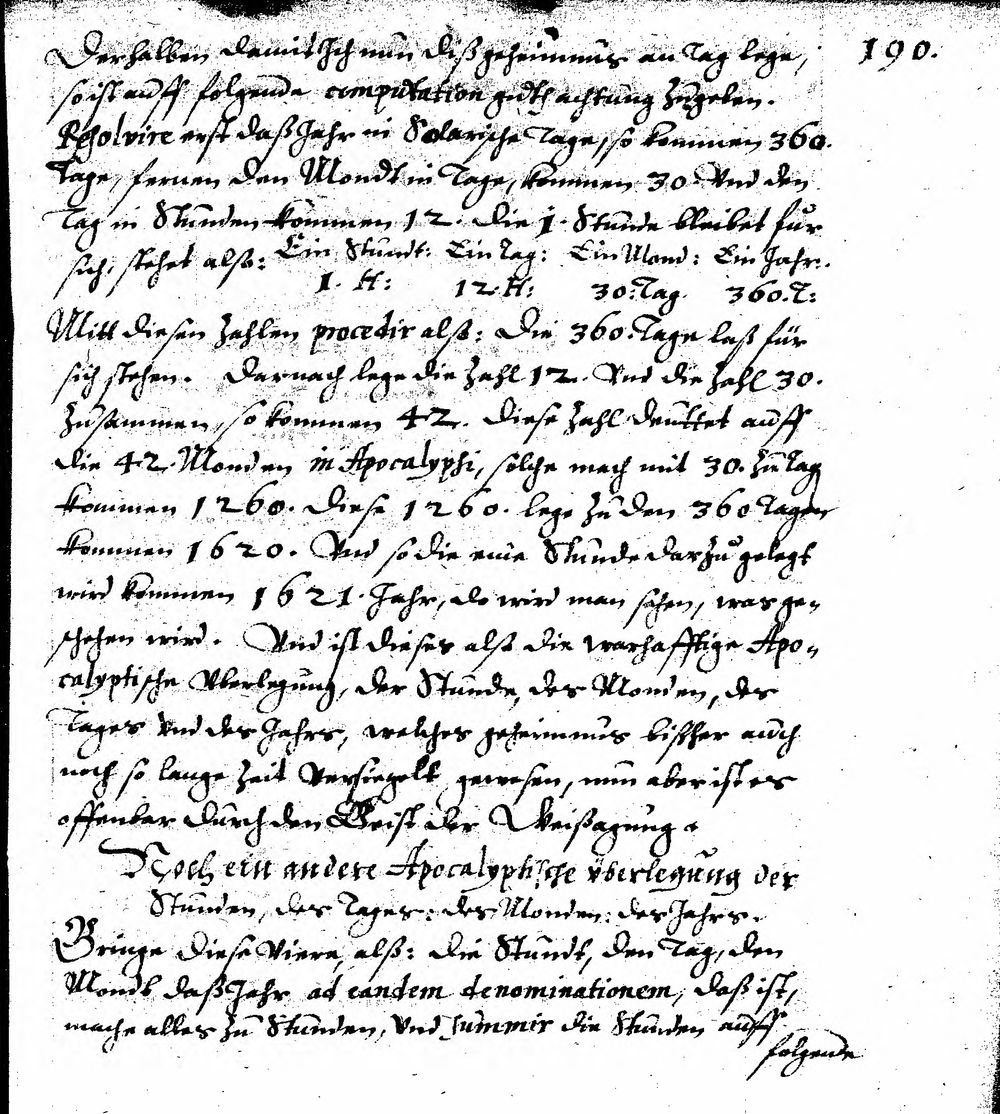 190.
Derhalben damit Ich nun diß geheimnus an Tag lege,
so ist auff folgende computation guth achtung Zugeben.
Resolvire erst daß Jahr in Solarische Tage, so kommen 360.
Tage, fernen den Mondt in Tage, kommen 30. Vnd den
Tag in Stunden kommen 12. die 1. Stunde bleibet fur
sich, stehet alß: Ein Stundt: Ein Tag: Ein Mond: Ein Jahr:
1. H: 12. H: 30. Tag. 360. T:
Mitt diesen Zahlen procedir alß: Die 360. Tage laß für
sich stehen. Darnach lege die Zahl 12. Vnd die Zahl 30.
Zusammen, so kommen 42. diese Zahl deuttet auff
die 42. Monden in Apocalypsi, solche mach mit 30. Zu Tag
kommen 1260. diese 1260. lege Zu den 360 Tagen
kommen 1620. Vnd so die eine Stunde darzu gelegt
wird kommen 1621. Jahr, do wird man sehen, was ge-
schehen wird. Vnd ist dieses alß die warhafftige Apo-
calyptische Vberlegung, der Stunde, des Monden, des
Tages Vnd des Jahrs, welches geheimnus bißher auch
noch so lange Zeit Versiegelt gewesen, nun aber ist es
offenbar durch den Geist der Weißagung.
Noch ein andere Apocalyptische überlegung der
Stunden, des Tages: des Monden: des Jahrs.
Bringe diese Viere, alß: die Stundt, den Tag, den
Mondt daß Jahr ad eandem denominationem, daß ist,
mache alles Zu Stunden, Vnd summir die Stunden auff
folgende